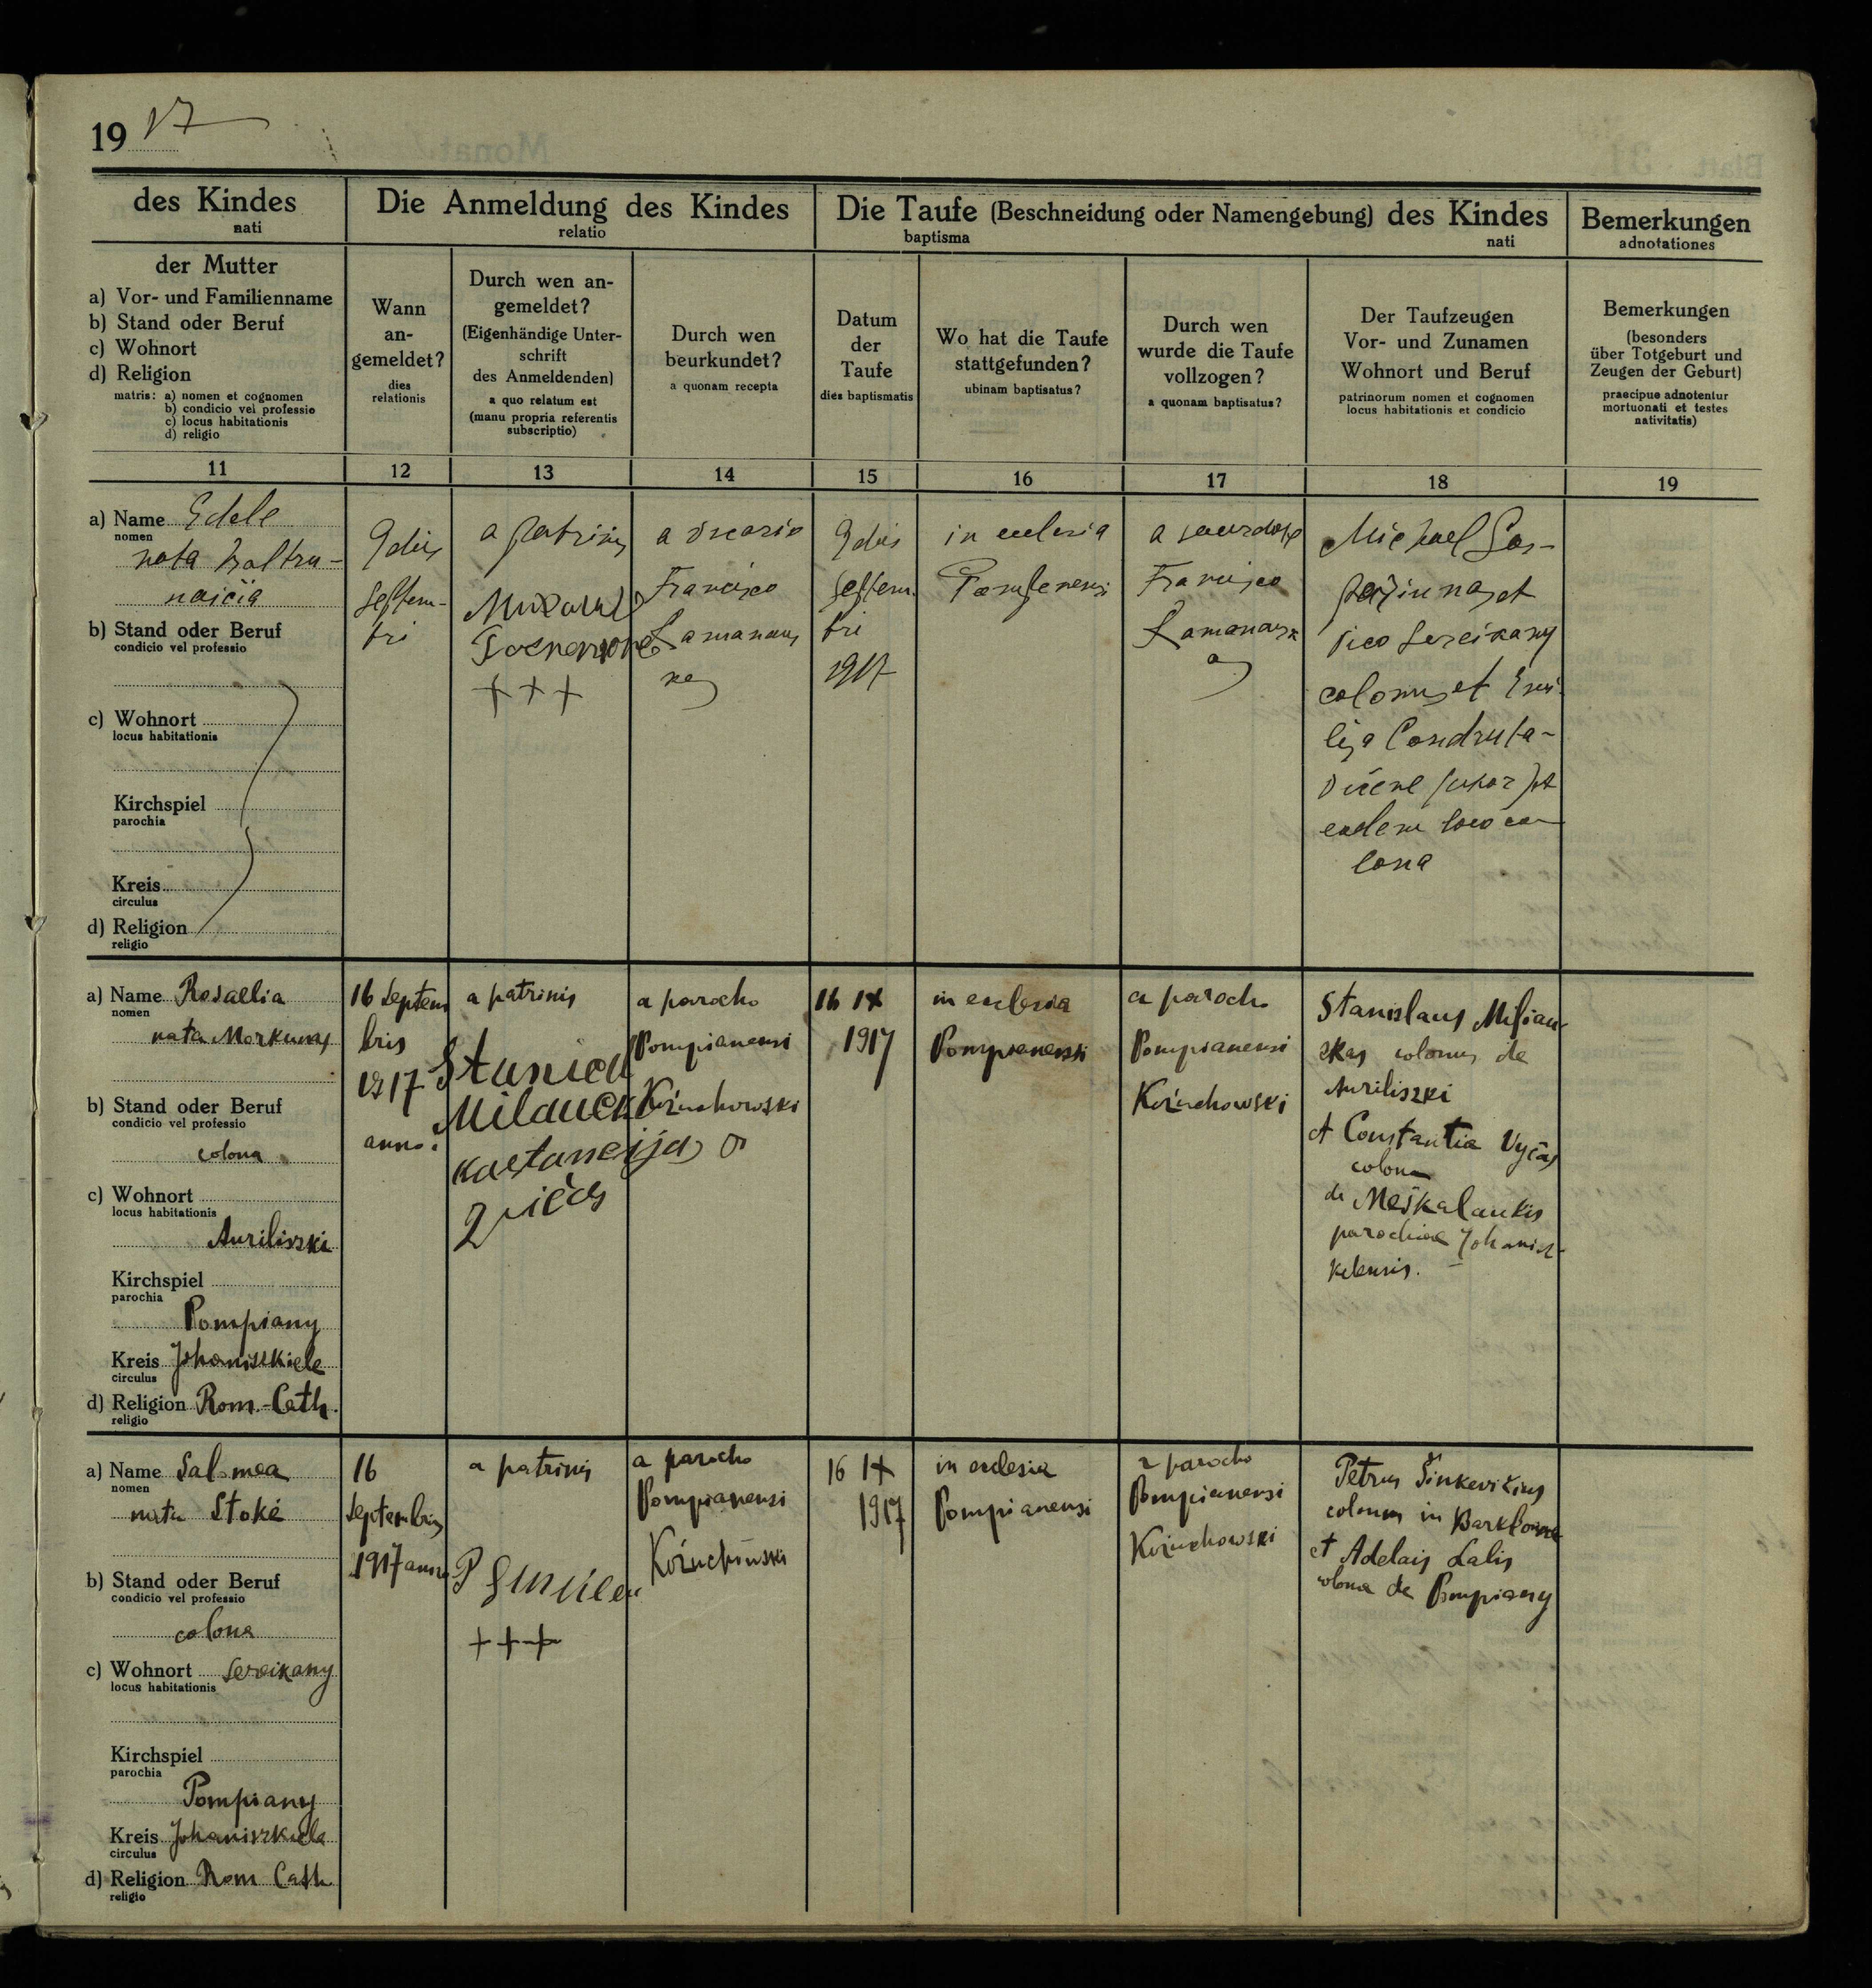 19 17
des Kindes
nati
Die Anmeldung des Kindes
relatio
Die Taufe (Beschneidung oder Namengebung) des Kindes
baptisma nati
Bemerkungen
adnotationes
der Mutter
a) Vor- und Familienname
b) Stand oder Beruf
c) Wohnort
d) Religion
matris: a) nomen et cognomen
b) condicio vel professio
c) locus habitationis
d) religio
Wann
an-
gemeldet?
dies
relationis
Durch wen an-
gemeldet?
(Eigenhändige Unter-
schrift
des Anmeldenden)
a quo relatum est
(manu propria referentis
subscriptio)
Durch wen
beurkundet?
a quonam recepta
Datum
der
Taufe
dies baptismatis
Wo hat die Taufe
stattgefunden?
ubinam baptisatus?
Durch wen
wurde die Taufe
vollzogen?
a quonam baptisatus?
Der Taufzeugen
Vor- und Zunamen
Wohnort und Beruf
patrinorum nomen et cognomen
locus habitationis et condicio
Bemerkungen
(besonders
über Totgeburt und
Zeugen der Geburt)
praecipue adnotentur
mortuonati et testes
nativitatis)
11 12 13 14 15 16 17 18 19
a) Name Edele
nomen
nata
b) Stand oder Beruf
condicio vel professio
c) Wohnort
locus habitationis
Kirchspiel
parochia
Kreis
circulus
d) Religion
religio
9 dies
septem-
bri
a patrinis
+++
a vicario
Francisco
9 dies
septem.
bri
1917
in eclesia
a sacerdote
Francisco
Michael
colonus et
eodem loco co-
lona
a) Name Rosaelia
nomen
nata Morkunas
b) Stand oder Beruf
condicio vel professio
colona
c) Wohnort
locus habitationis
Auriliszki
Kirchspiel
parochia
Pompiany
Kreis Johaniszkiele
circulus
d) Religion Rom.-Cath.
religio
16 Septem
bris
1917
anno.
a patrinis
a parocho
Pompianensi
Koźuchowski
16 IX
1917
in eclesia
Pompianensi
a parocho
Pompianensi
Koźuchowski
Stanislaus Milau-
skas colonus de
Auriliszki
et Constantia Vyčas
colona
de Meškalaukis
parochiae Johanisz-
kelensis.
a) Name Salomea
nomen
nata Stoké
b) Stand oder Beruf
condicio vel professio
colona
c) Wohnort Sereikany
locus habitationis
Kirchspiel
parochia
Pompiany
Kreis Johaniszkiele
circulus
d) Religion Rom Cath.
religio
16
Septembris
1917 anno
a patrinis
+++
a parocho
Pompianensi
Koźuchowski
16 IX
1917
in eclesia
Pompianensi
a parocho
Pompianensi
Koźuchowski
Petrus Šinkevičius
colonus in
et Adelais Lalis
colona de Pompiany